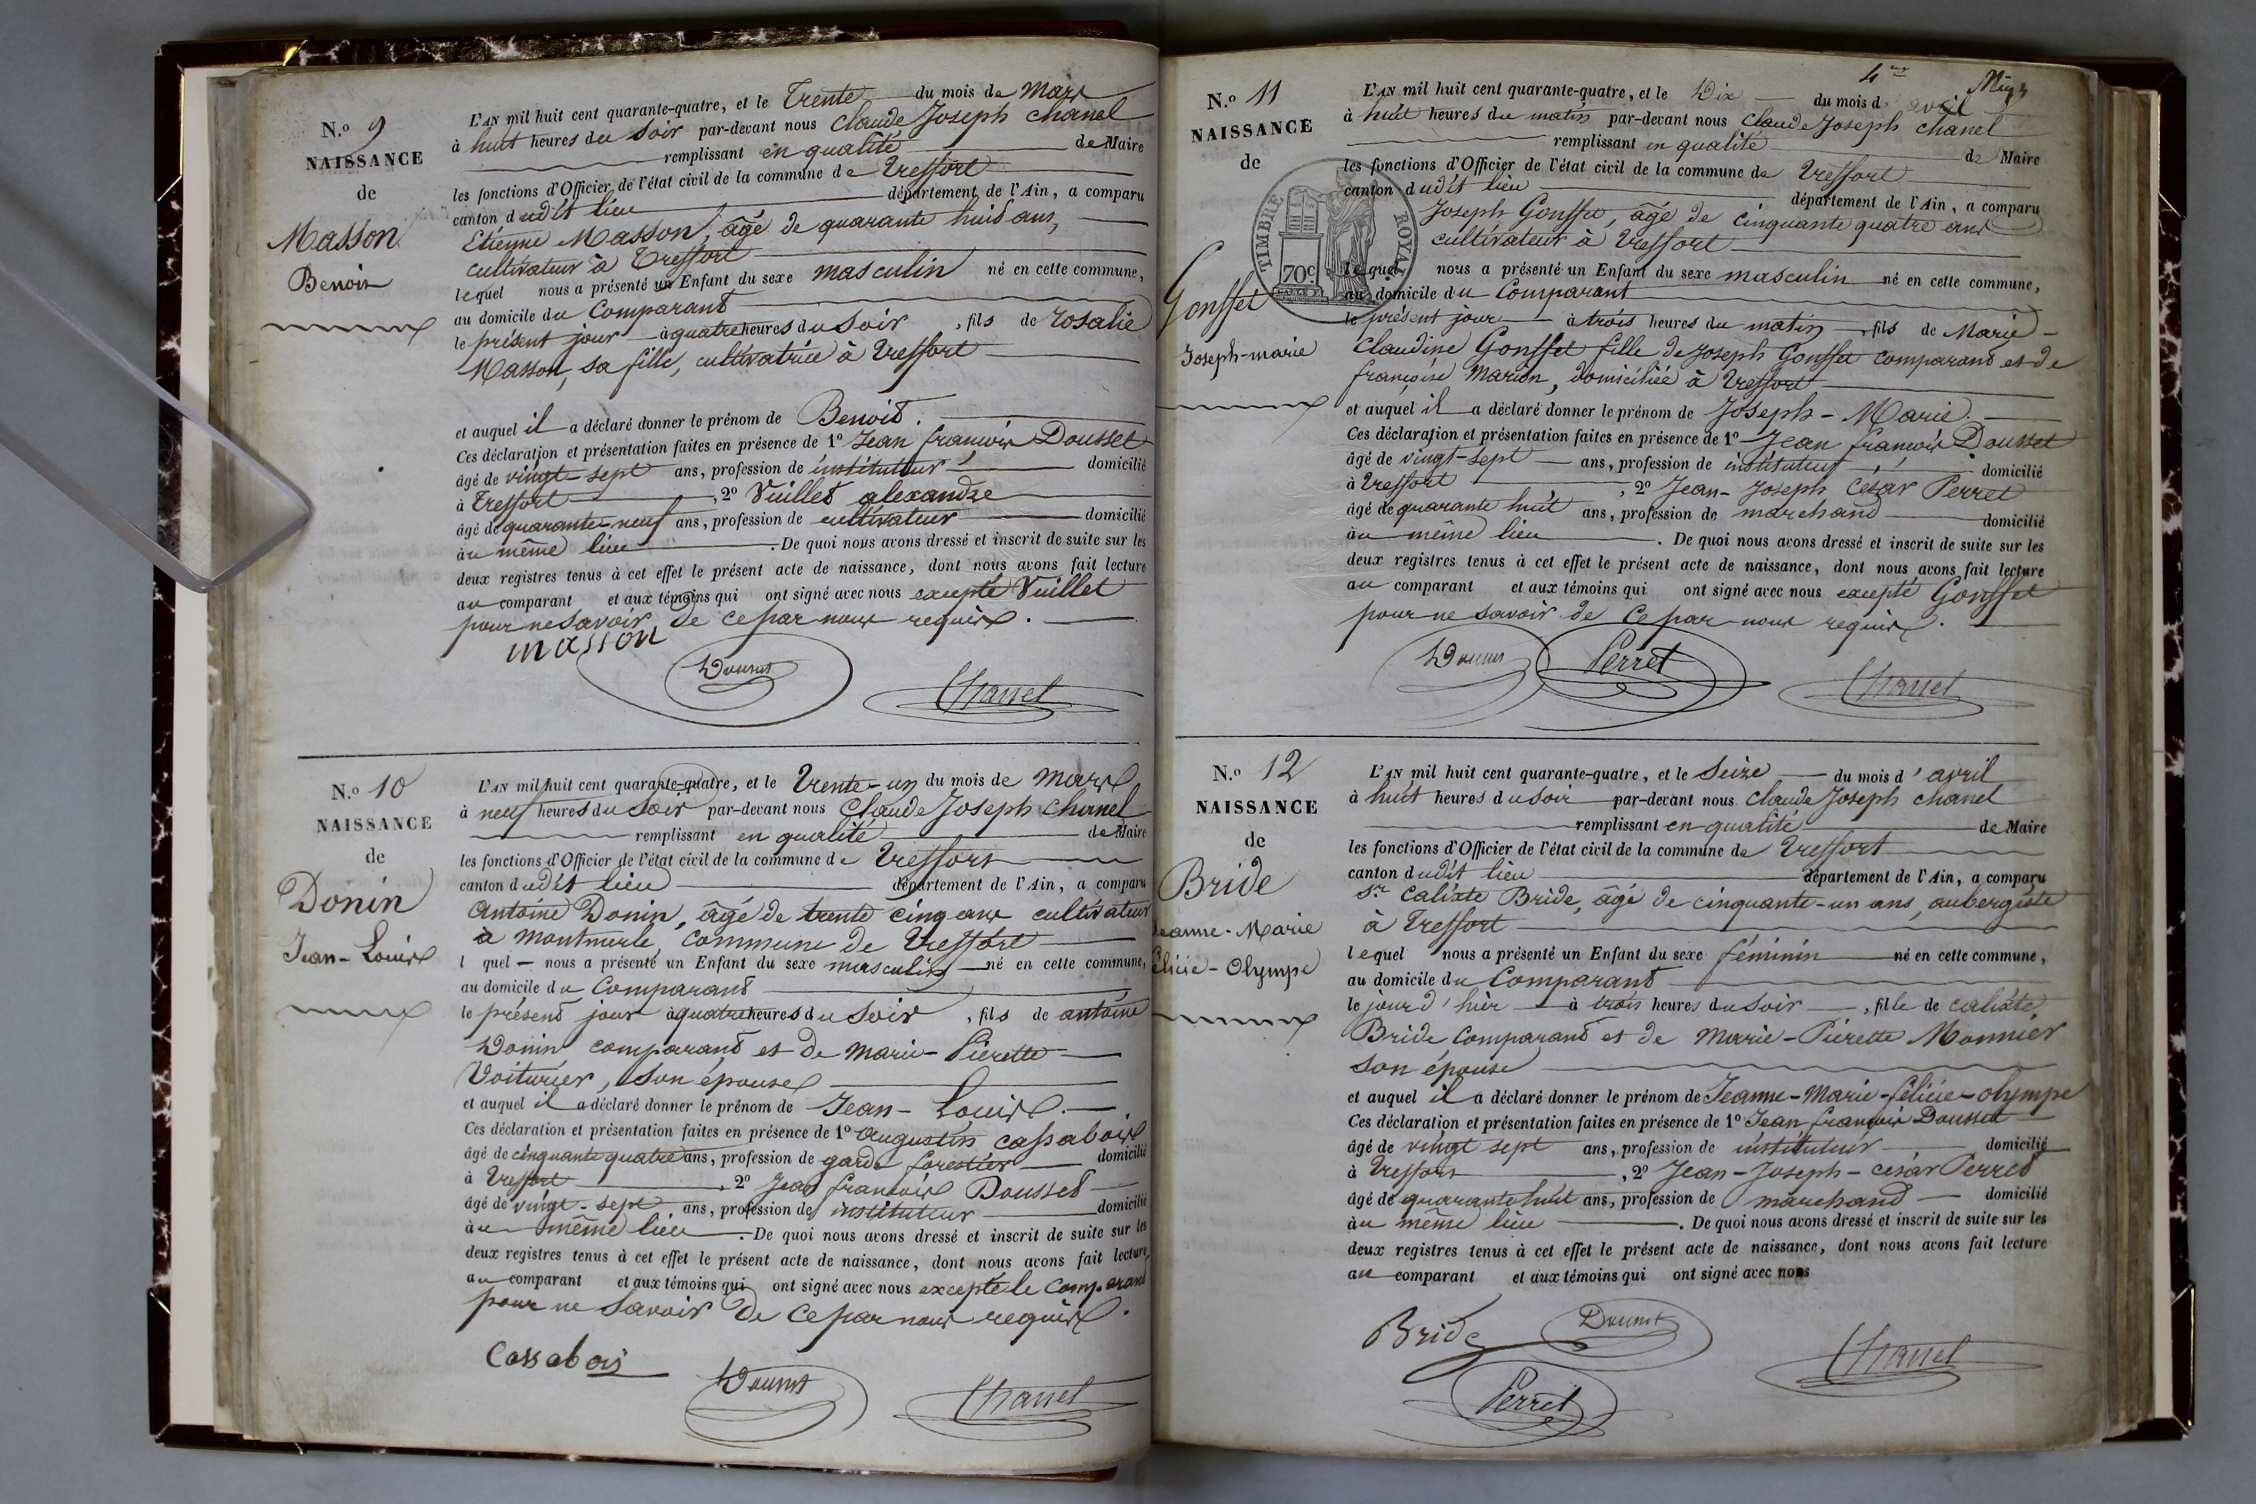 N.o 9
NAISSANCE
de
Masson
Benoit
L'AN mil huit cent quarante-quatre, et le Trente du mois de Mars
à huit heures du Soir par-devant nous Claude Joseph Chanel
remplissant en qualité de Maire
les fonctions d'Officier de l'état civil de la commune de Treffort
canton dudit lieu département de l'Ain, a comparu
Etienne Masson, âgé de quarante huit ans,
cultivateur à Treffort
lequel nous a présenté un Enfant du sexe masculin né en cette commune,
au domicile du Comparant
le présent jour à quatre heures du Soir, fils de rosalie
Masson, sa fille, cultivatrice à Treffort
et auquel il a déclaré donner le prénom de Benoit.
Ces déclaration et présentation faites en présence de 1o Jean françois Dousset
âgé de vingt-sept ans, profession de instituteur domicilié
à Treffort, 2o Vuillet alexandre
âgé de quarante-neuf ans, profession de cultivateur domicilié
au même lieu. De quoi nous avons dressé et inscrit de suite sur les
deux registres tenus à cet effet le présent acte de naissance, dont nous avons fait lecture
au comparant et aux témoins qui ont signé avec nous excepté Vuillet
pour ne savoir de ce par nous requis.
masson
Dousset
Chanel
N.o 10
NAISSANCE
de
Donin
Jean-Louis
L'AN mil huit cent quarante-quatre, et le Trente-un du mois de Mars
à neuf heures du Soir par-devant nous Claude Joseph Chanel
remplissant en qualité de Maire
les fonctions d'Officier de l'état civil de la commune de Treffort
canton dudit lieu département de l'Ain, a comparu
Antoine Donin, âgé de trente cinq ans cultivateur
à Montmerle, commune de Treffort
l quel nous a présenté un Enfant du sexe masculin né en cette commune,
au domicile du Comparant
le présent jour à quatre heures du Soir, fils de antoine
Donin comparant et de Marie-Pierette
Voiturier, Son épouse
et auquel il a déclaré donner le prénom de Jean-Louis.
Ces déclaration et présentation faites en présence de 1o Augustin Cassabois
âgé de cinquante quatre ans, profession de garde forestier domicilié
à Treffort, 2o Jean françois Dousset
âgé de vingt-sept ans, profession de instituteur domicilié
au même lieu. De quoi nous avons dressé et inscrit de suite sur les
deux registres tenus à cet effet le présent acte de naissance, dont nous avons fait lecture
au comparant et aux témoins qui ont signé avec nous excepté le Comparant
pour ne Savoir de ce par nous requis.
Cassabois
Dousset
Chanel
4me
N.o 11
NAISSANCE
de
Gonsset
Joseph-marie
TIMBRE ROYAL
70c
L'AN mil huit cent quarante-quatre, et le Dix du mois d avril
à huit heures du matin par-devant nous Claude Joseph Chanel
remplissant en qualité de Maire
les fonctions d'Officier de l'état civil de la commune de Treffort
canton dudit lieu département de l'Ain, a comparu
Joseph Gonsset, âgé de cinquante quatre ans
cultivateur à Treffort
lequel nous a présenté un Enfant du sexe masculin né en cette commune,
au domicile du Comparant
le présent jour à trois heures du matin, fils de Marie
Claudine Gonsset fille de Joseph Gonsset comparant et de
françoise Marion, domiciliée à Treffort
et auquel il a déclaré donner le prénom de Joseph-Marie.
Ces déclaration et présentation faites en présence de 1o Jean françois Dousset
âgé de vingt-sept ans, profession de instituteur domicilié
à Treffort, 2o Jean-Joseph César Perret
âgé de quarante huit ans, profession de marchand domicilié
au même lieu. De quoi nous avons dressé et inscrit de suite sur les
deux registres tenus à cet effet le présent acte de naissance, dont nous avons fait lecture
au comparant et aux témoins qui ont signé avec nous excepté Gonsset
pour ne savoir de ce par nous requis.
Dousset
Perret
Chanel
N.o 12
NAISSANCE
de
Bride
Jeanne-Marie
félicie-Olympe
L'AN mil huit cent quarante-quatre, et le Seize du mois d'avril
à huit heures du soir par-devant nous Claude Joseph Chanel
remplissant en qualité de Maire
les fonctions d'Officier de l'état civil de la commune de Treffort
canton dudit lieu département de l'Ain, a comparu
Sr Calixte Bride, âgé de cinquante-un ans, aubergiste
à Treffort
lequel nous a présenté un Enfant du sexe féminin né en cette commune,
au domicile du Comparant
le jour d'hier à trois heures du Soir, fille de calixte
Bride comparant et de Marie-Pierette Monnier
son épouse
et auquel il a déclaré donner le prénom de Jeanne-Marie-félicie-olympe
Ces déclaration et présentation faites en présence de 1o Jean françois Dousset
âgé de vingt sept ans, profession de instituteur domicilié
à Treffort, 2o Jean-Joseph-César Perret
âgé de quarante huit ans, profession de marchand domicilié
au même lieu. De quoi nous avons dressé et inscrit de suite sur les
deux registres tenus à cet effet le présent acte de naissance, dont nous avons fait lecture
au comparant et aux témoins qui ont signé avec nous
Bride
Dousset
Perret
Chanel